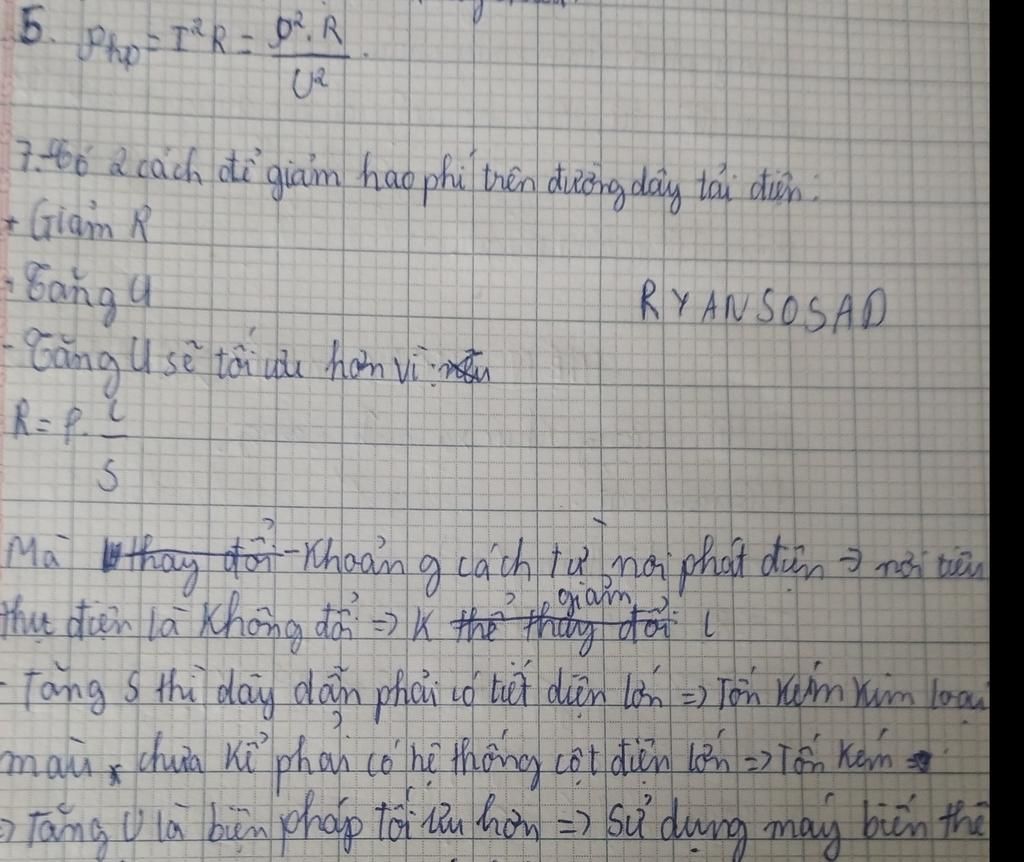 5. Php = I²R = P².R / U².
7. Có 2 cách để giảm hao phí trên đường dây tải điện:
+ Giảm R
- Tăng U
RYANSOSAD
- Tăng U sẽ tối ưu hơn vì:
R = ρ. l / S
Mà thay đổi Khoảng cách từ nơi phát điện => nơi tiêu
thụ điện là không đổi => K thể thay đổi giảm l
- Tăng S thì dây dẫn phải có tiết diện lớn => Tốn kém kim loại
màu, chưa kể phải có hệ thống cột điện lớn => Tốn kém
=> Tăng U là biện pháp tối ưu hơn => Sử dụng máy biến thế